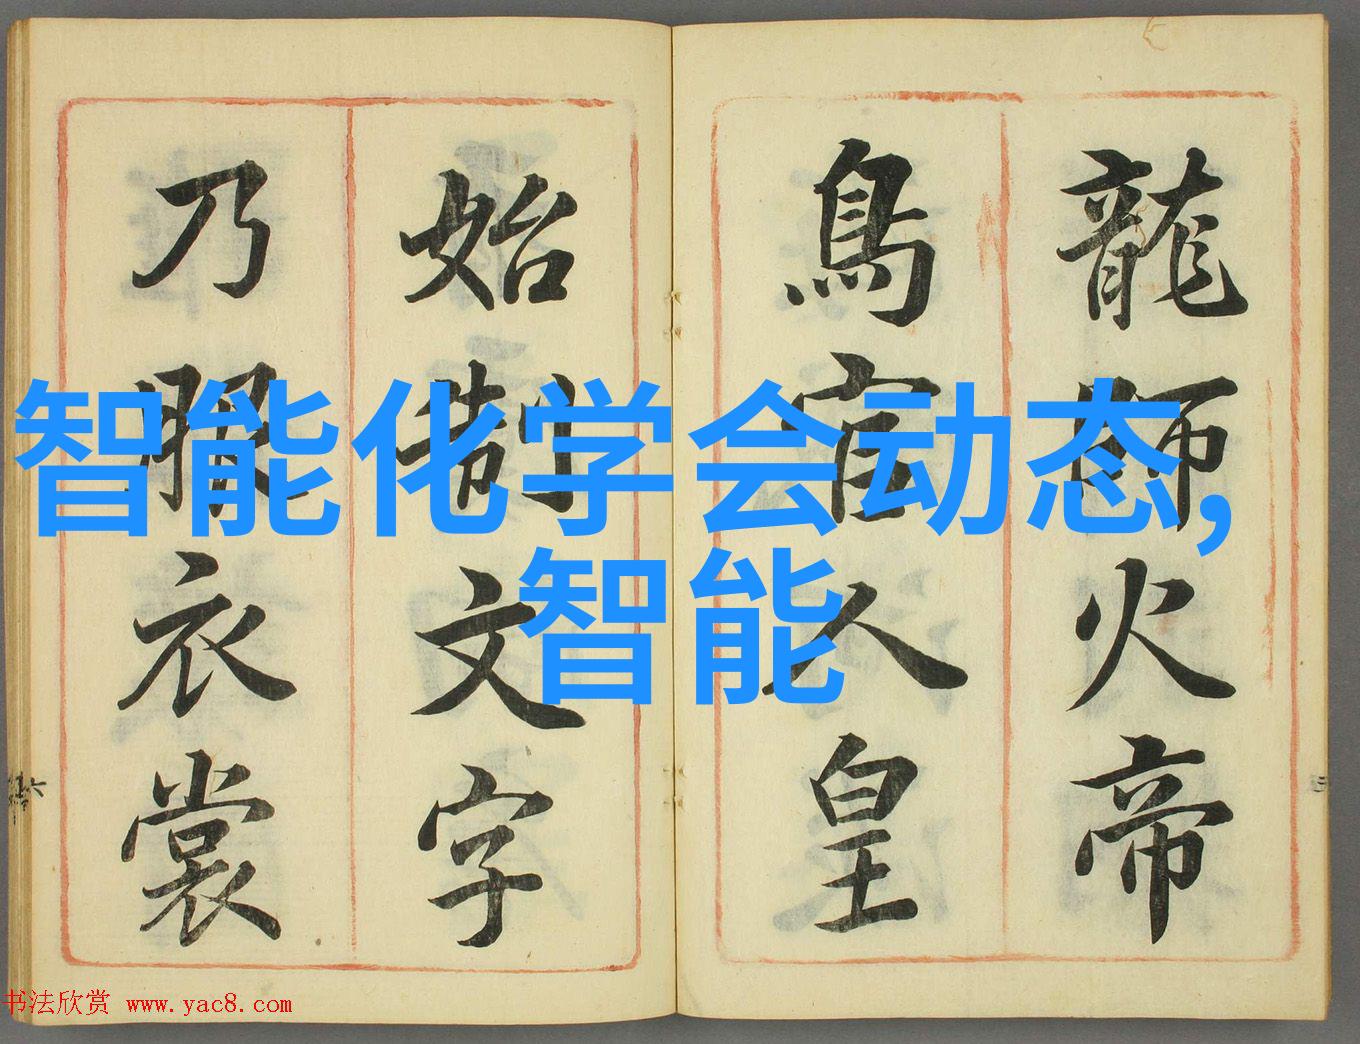 龍師火帝
鳥官人皇
始制文字
乃服衣裳
智能化学会动态,
智能
书法欣赏 www.yac8.com